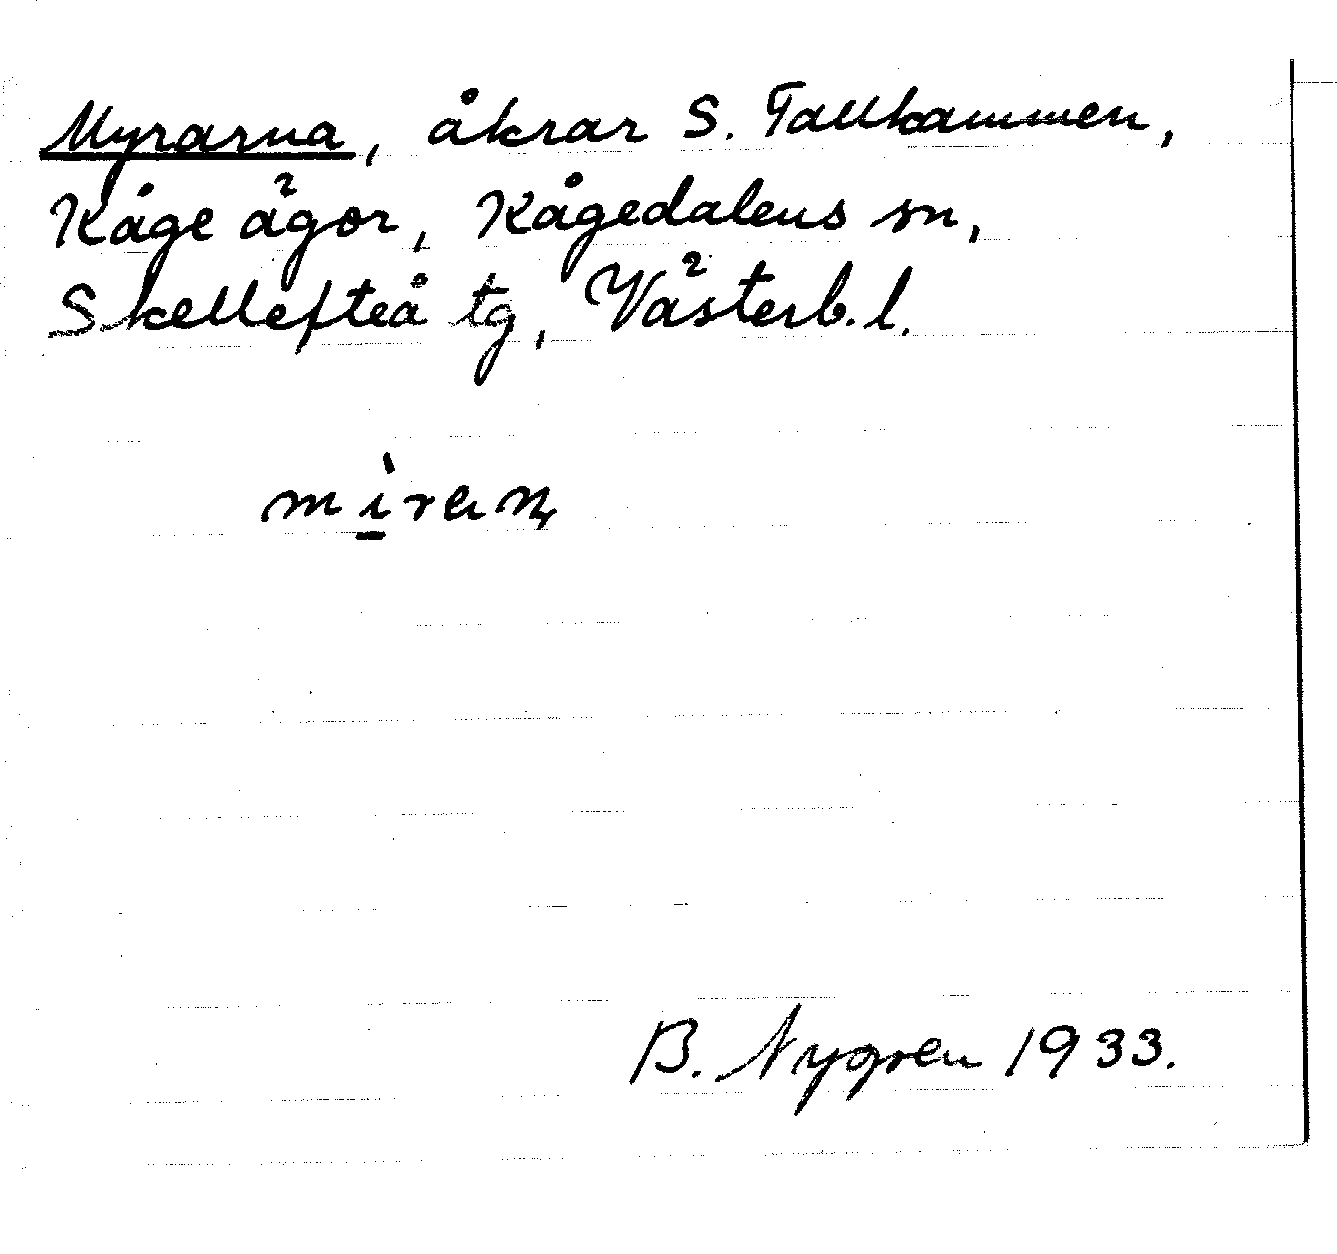 Myrarna, åkrar S. Tallkammen,
Kåge ägor, Kågedalens sn,
Skellefteå tg, Västerb. l.
B. Nygren 1933.